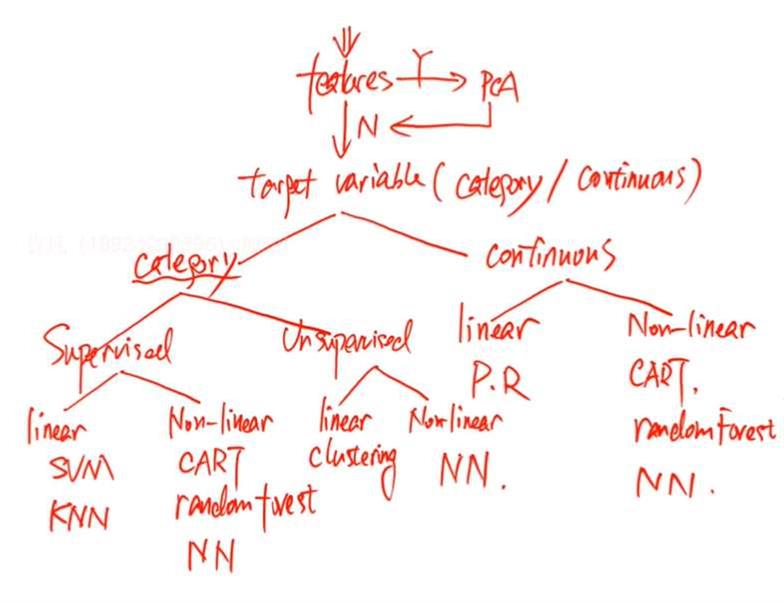 features Y PCA
N
Target variable (category / continuous)
category
continuous
Supervised
Unsupervised
linear
Non-linear
linear
Non-linear
linear
Non-linear
SVM
KNN
CART
random forest
NN
clustering
NN.
P.R
CART.
random forest
NN.